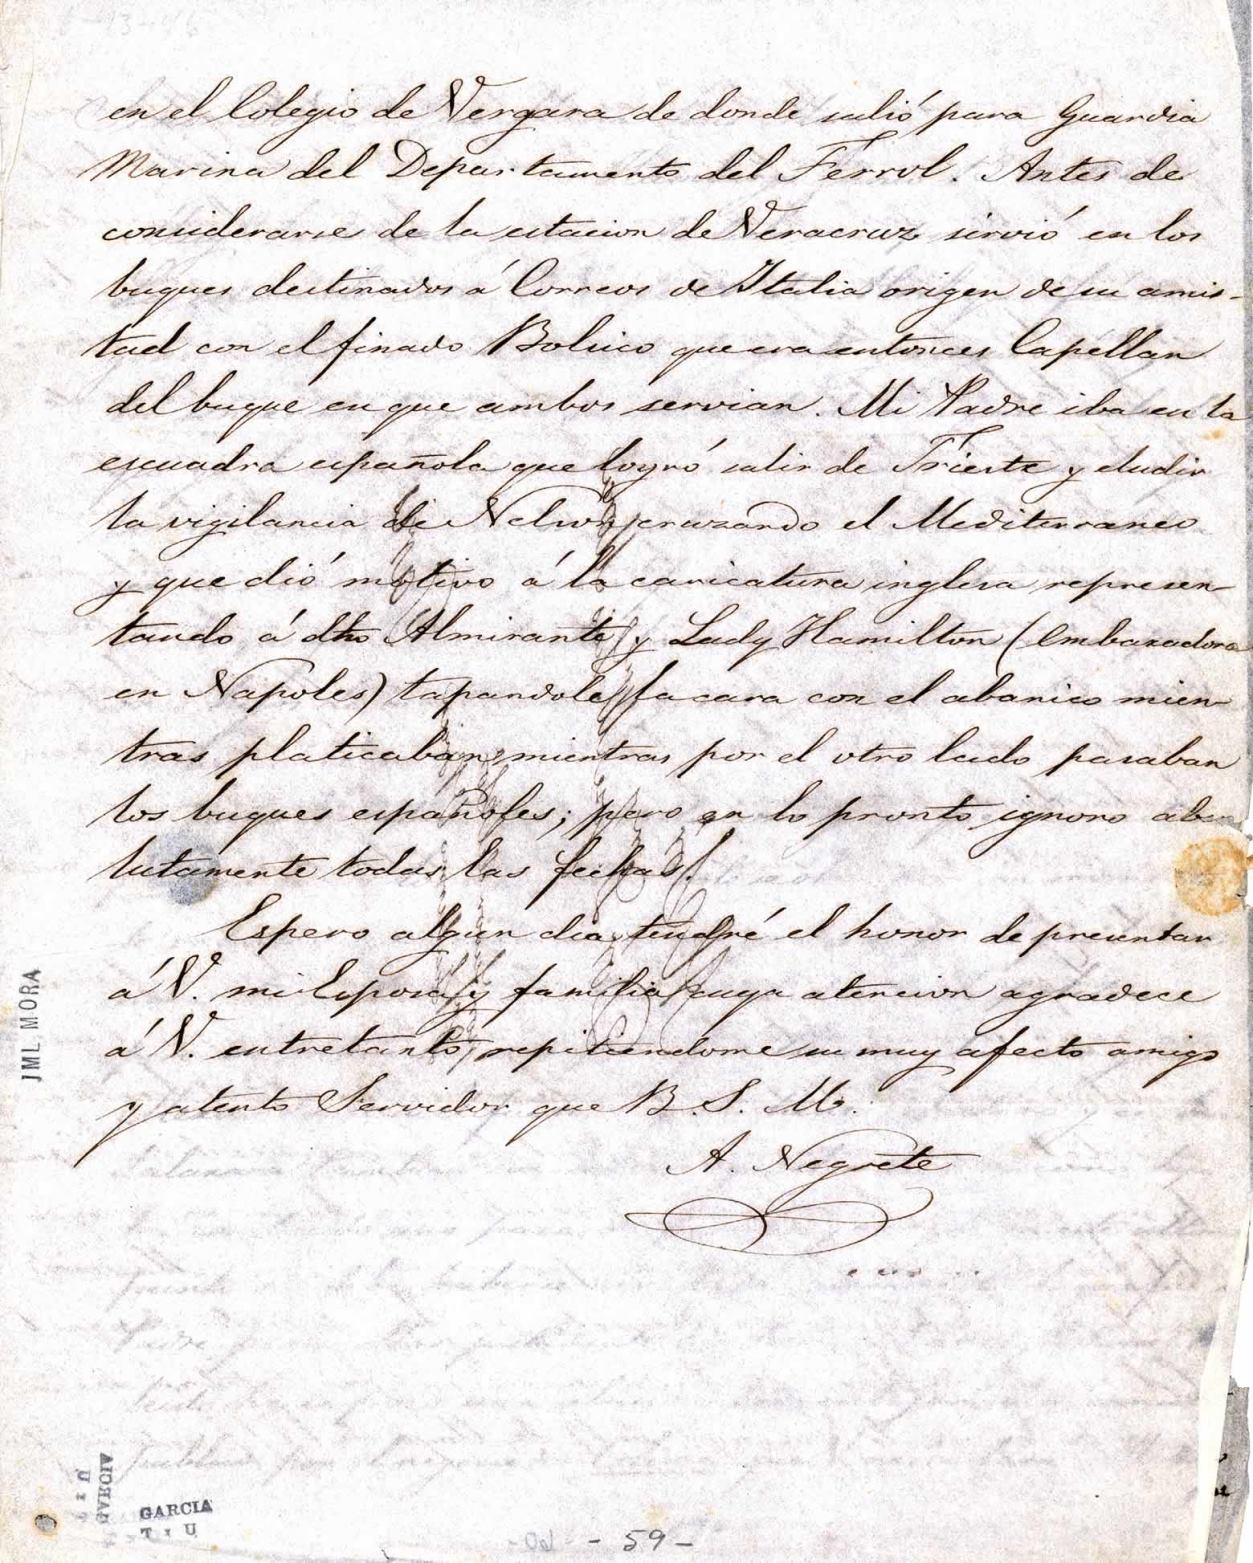 en el Colegio de Vergara de donde salió para Guardia
Marina del Departamento del Ferrol. Antes de
considerarse de la estacion de Veracruz sirvió en los
buques destinados á Correos de Italia origen de su amis-
tad con el finado Bolsico que era entonces Capellan
del buque en que ambos servian. Mi Padre iba en la
escuadra española que logró salir de Trieste y eludir
la vigilancia de Nelson cruzando el Mediterraneo
y que dió motivo á la caricatura inglesa represen-
tando á dho Almirante y Lady Hamilton (Embaxadora
en Napoles) tapandole la cara con el abanico mien-
tras platicaban, mientras por el otro lado pasaban
los buques españoles; pero en lo pronto ignoro abso
lutamente todas las fechas.
Espero algun dia tendré el honor de presentar
á V. mi Esposa y familia cuya atencion agradece
á V. entretanto, repitiendome su muy afecto amigo
y atento Servidor que B. S. M.
A. Negrete
JML MORA
GARCIA
- 59 -